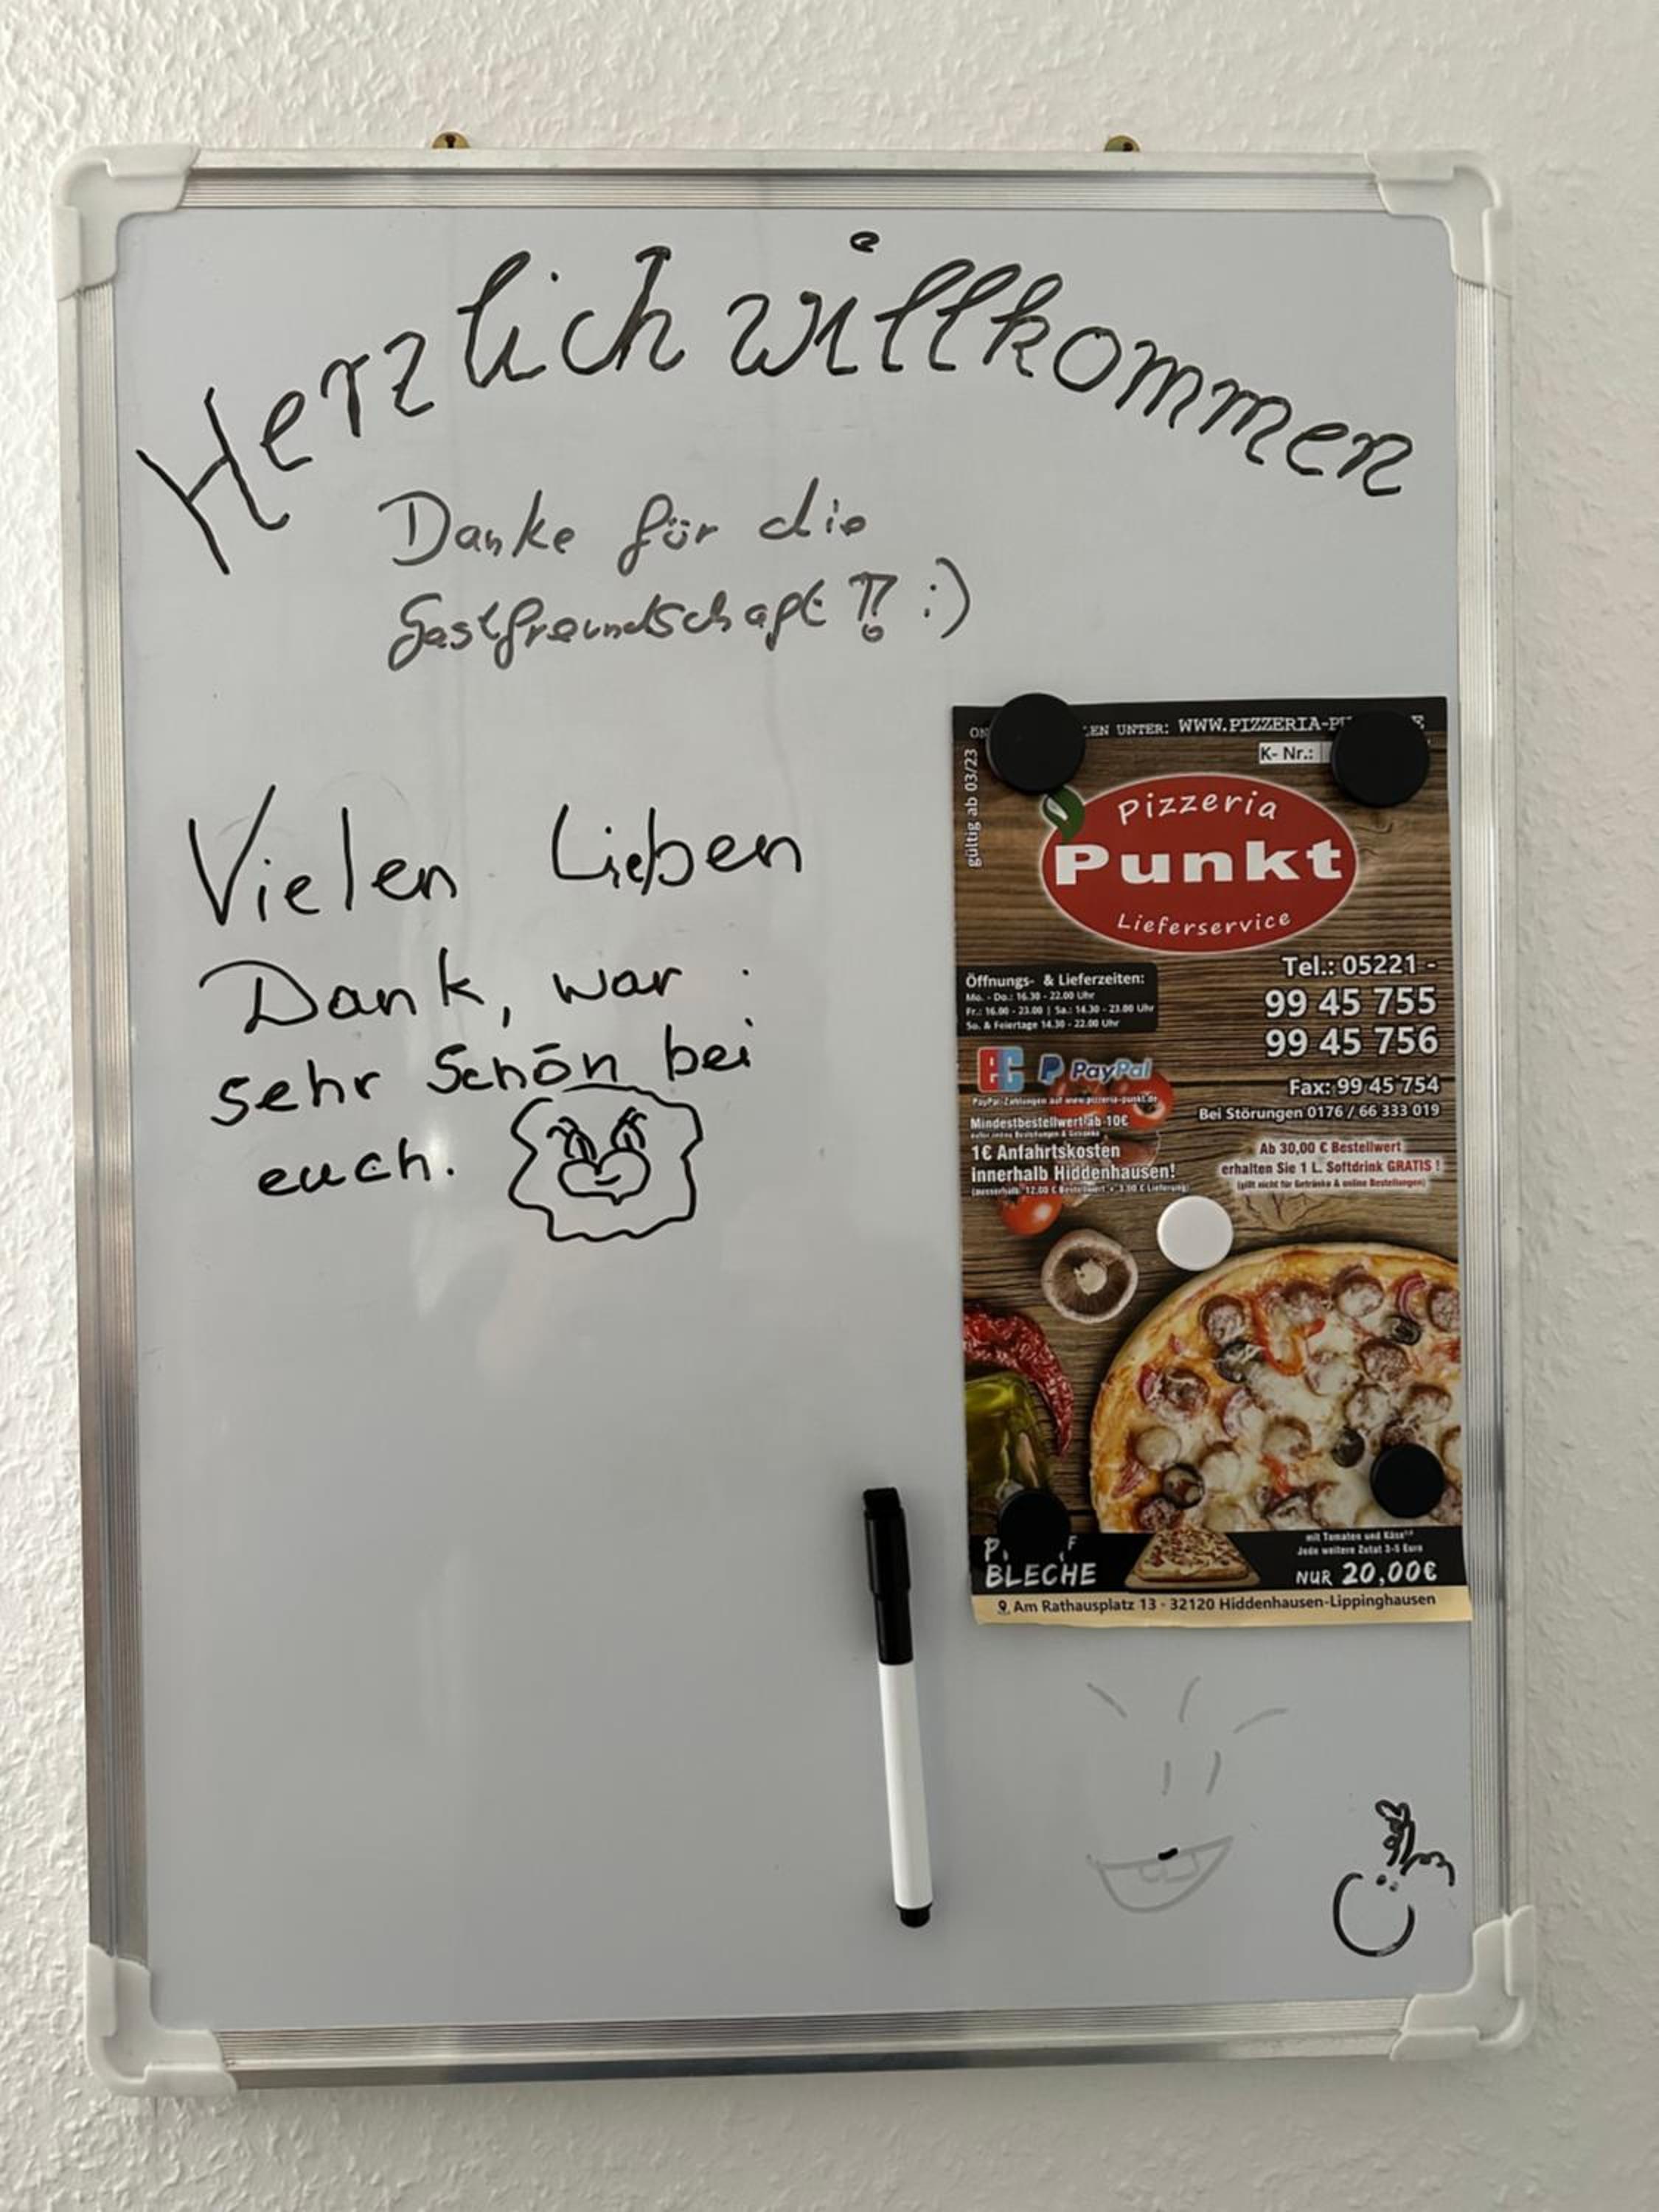 Herzlich willkommen
Danke für die
Gastfreundschaft !! :)
Vielen Lieben
Dank, war
sehr Schön bei
euch.
LEN UNTER: WWW.PIZZERIA-PU
K- Nr.:
gültig ab 03/23
Pizzeria
Punkt
Lieferservice
Tel.: 05221 -
99 45 755
99 45 756
Fax: 99 45 754
Bei Störungen 0176 / 66 333 019
Öffnungs- & Lieferzeiten:
Mo. - Do.: 16.30 - 22.00 Uhr
Fr.: 16.00 - 23.00 | Sa.: 14.30 - 23.00 Uhr
So. & Feiertage 14.30 - 22.00 Uhr
EC P PayPal
PayPal-Zahlungen auf www.pizzeria-punkt.de
Mindestbestellwert ab 10€
1€ Anfahrtskosten
innerhalb Hiddenhausen!
(ausserhalb: 12.00 € Bestellwert + 3.00 € Lieferung)
Ab 30,00 € Bestellwert
erhalten Sie 1 L. Softdrink GRATIS !
(gilt nicht für Getränke & online Bestellungen)
BLECHE
mit Tomaten und Käse
Jede weitere Zutat 3-5 Euro
NUR 20,00€
Am Rathausplatz 13 - 32120 Hiddenhausen-Lippinghausen